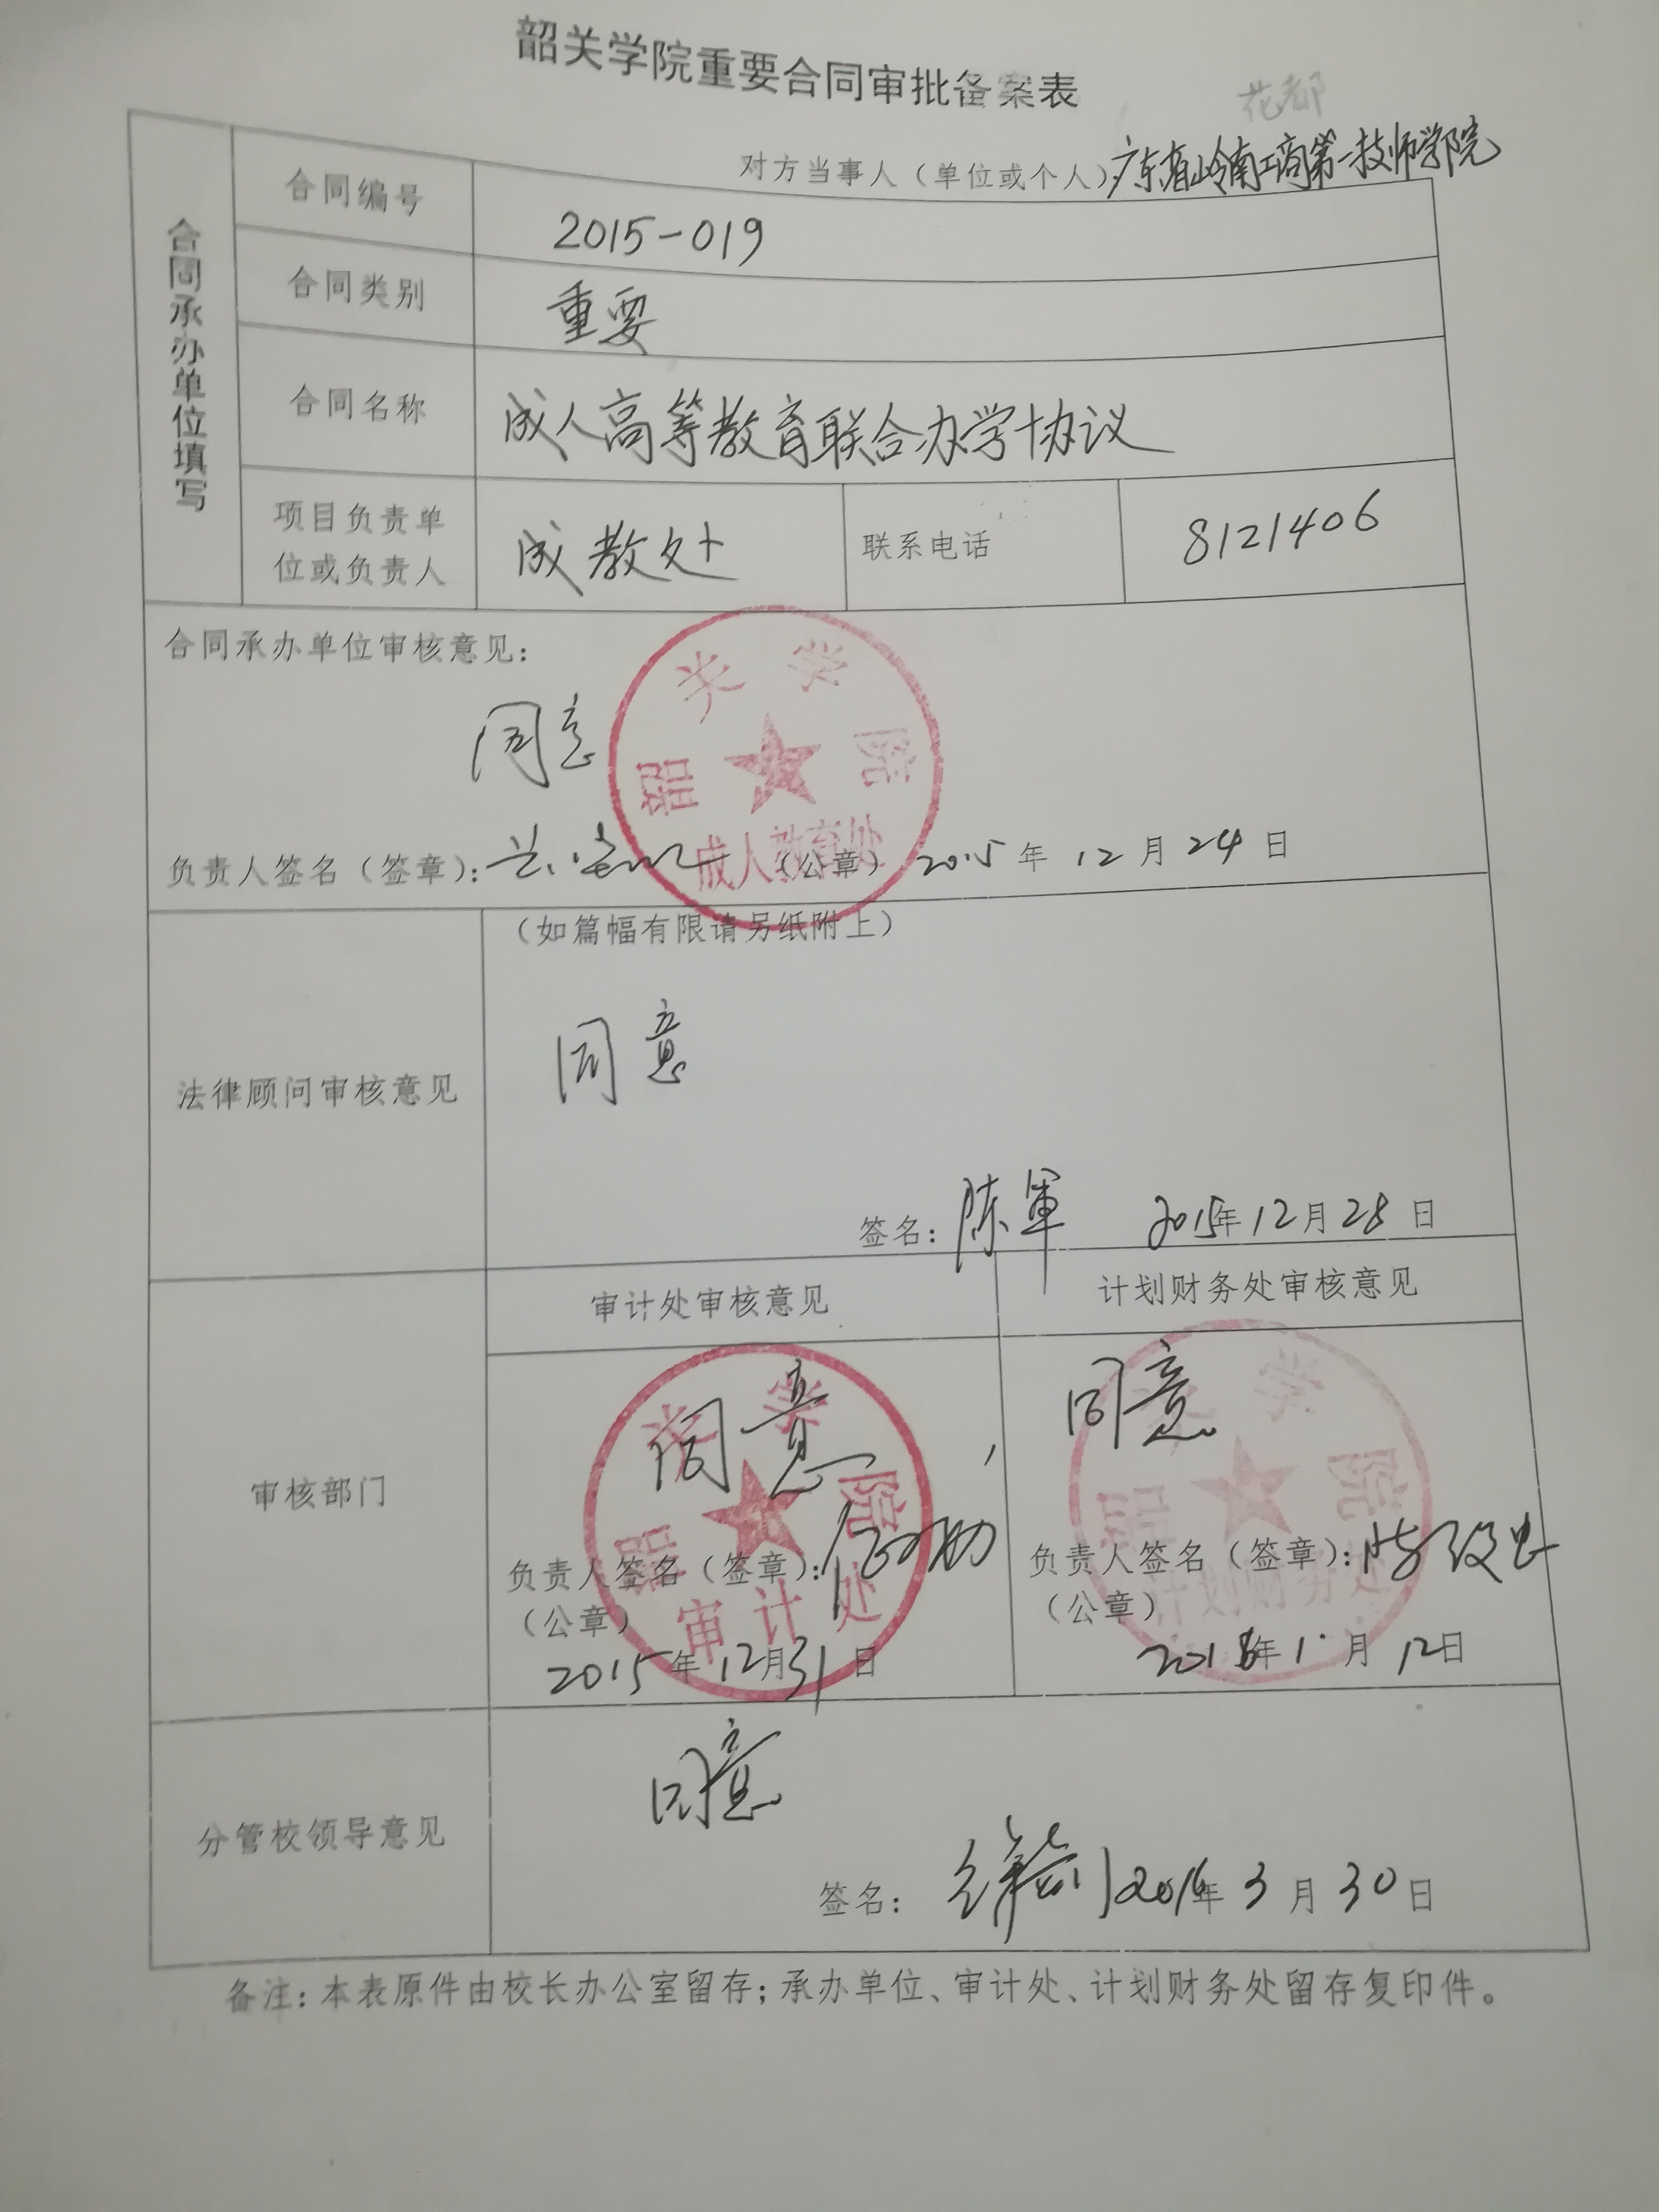 韶关学院重要合同审批备案表
花都
对方当事人（单位或个人）广东省岭南工商第一技师学院
合同承办单位填写
合同编号
2015-019
合同类别
重要
合同名称
成人高等教育联合办学协议
项目负责单
位或负责人
成教处
联系电话
8121406
合同承办单位审核意见：
同意
韶关学院
成人教育处
负责人签名（签章）：
（公章）
2015年12月24日
（如篇幅有限请另纸附上）
法律顾问审核意见
同意
签名：陈军 2015年12月28日
审核部门
审计处审核意见
计划财务处审核意见
同意
韶关学院
审计处
负责人签名（签章）：
（公章）
2015年12月31日
同意
韶关学院
计划财务处
负责人签名（签章）：
（公章）
2016年1月12日
分管校领导意见
同意
签名：
2016年3月30日
备注：本表原件由校长办公室留存；承办单位、审计处、计划财务处留存复印件。